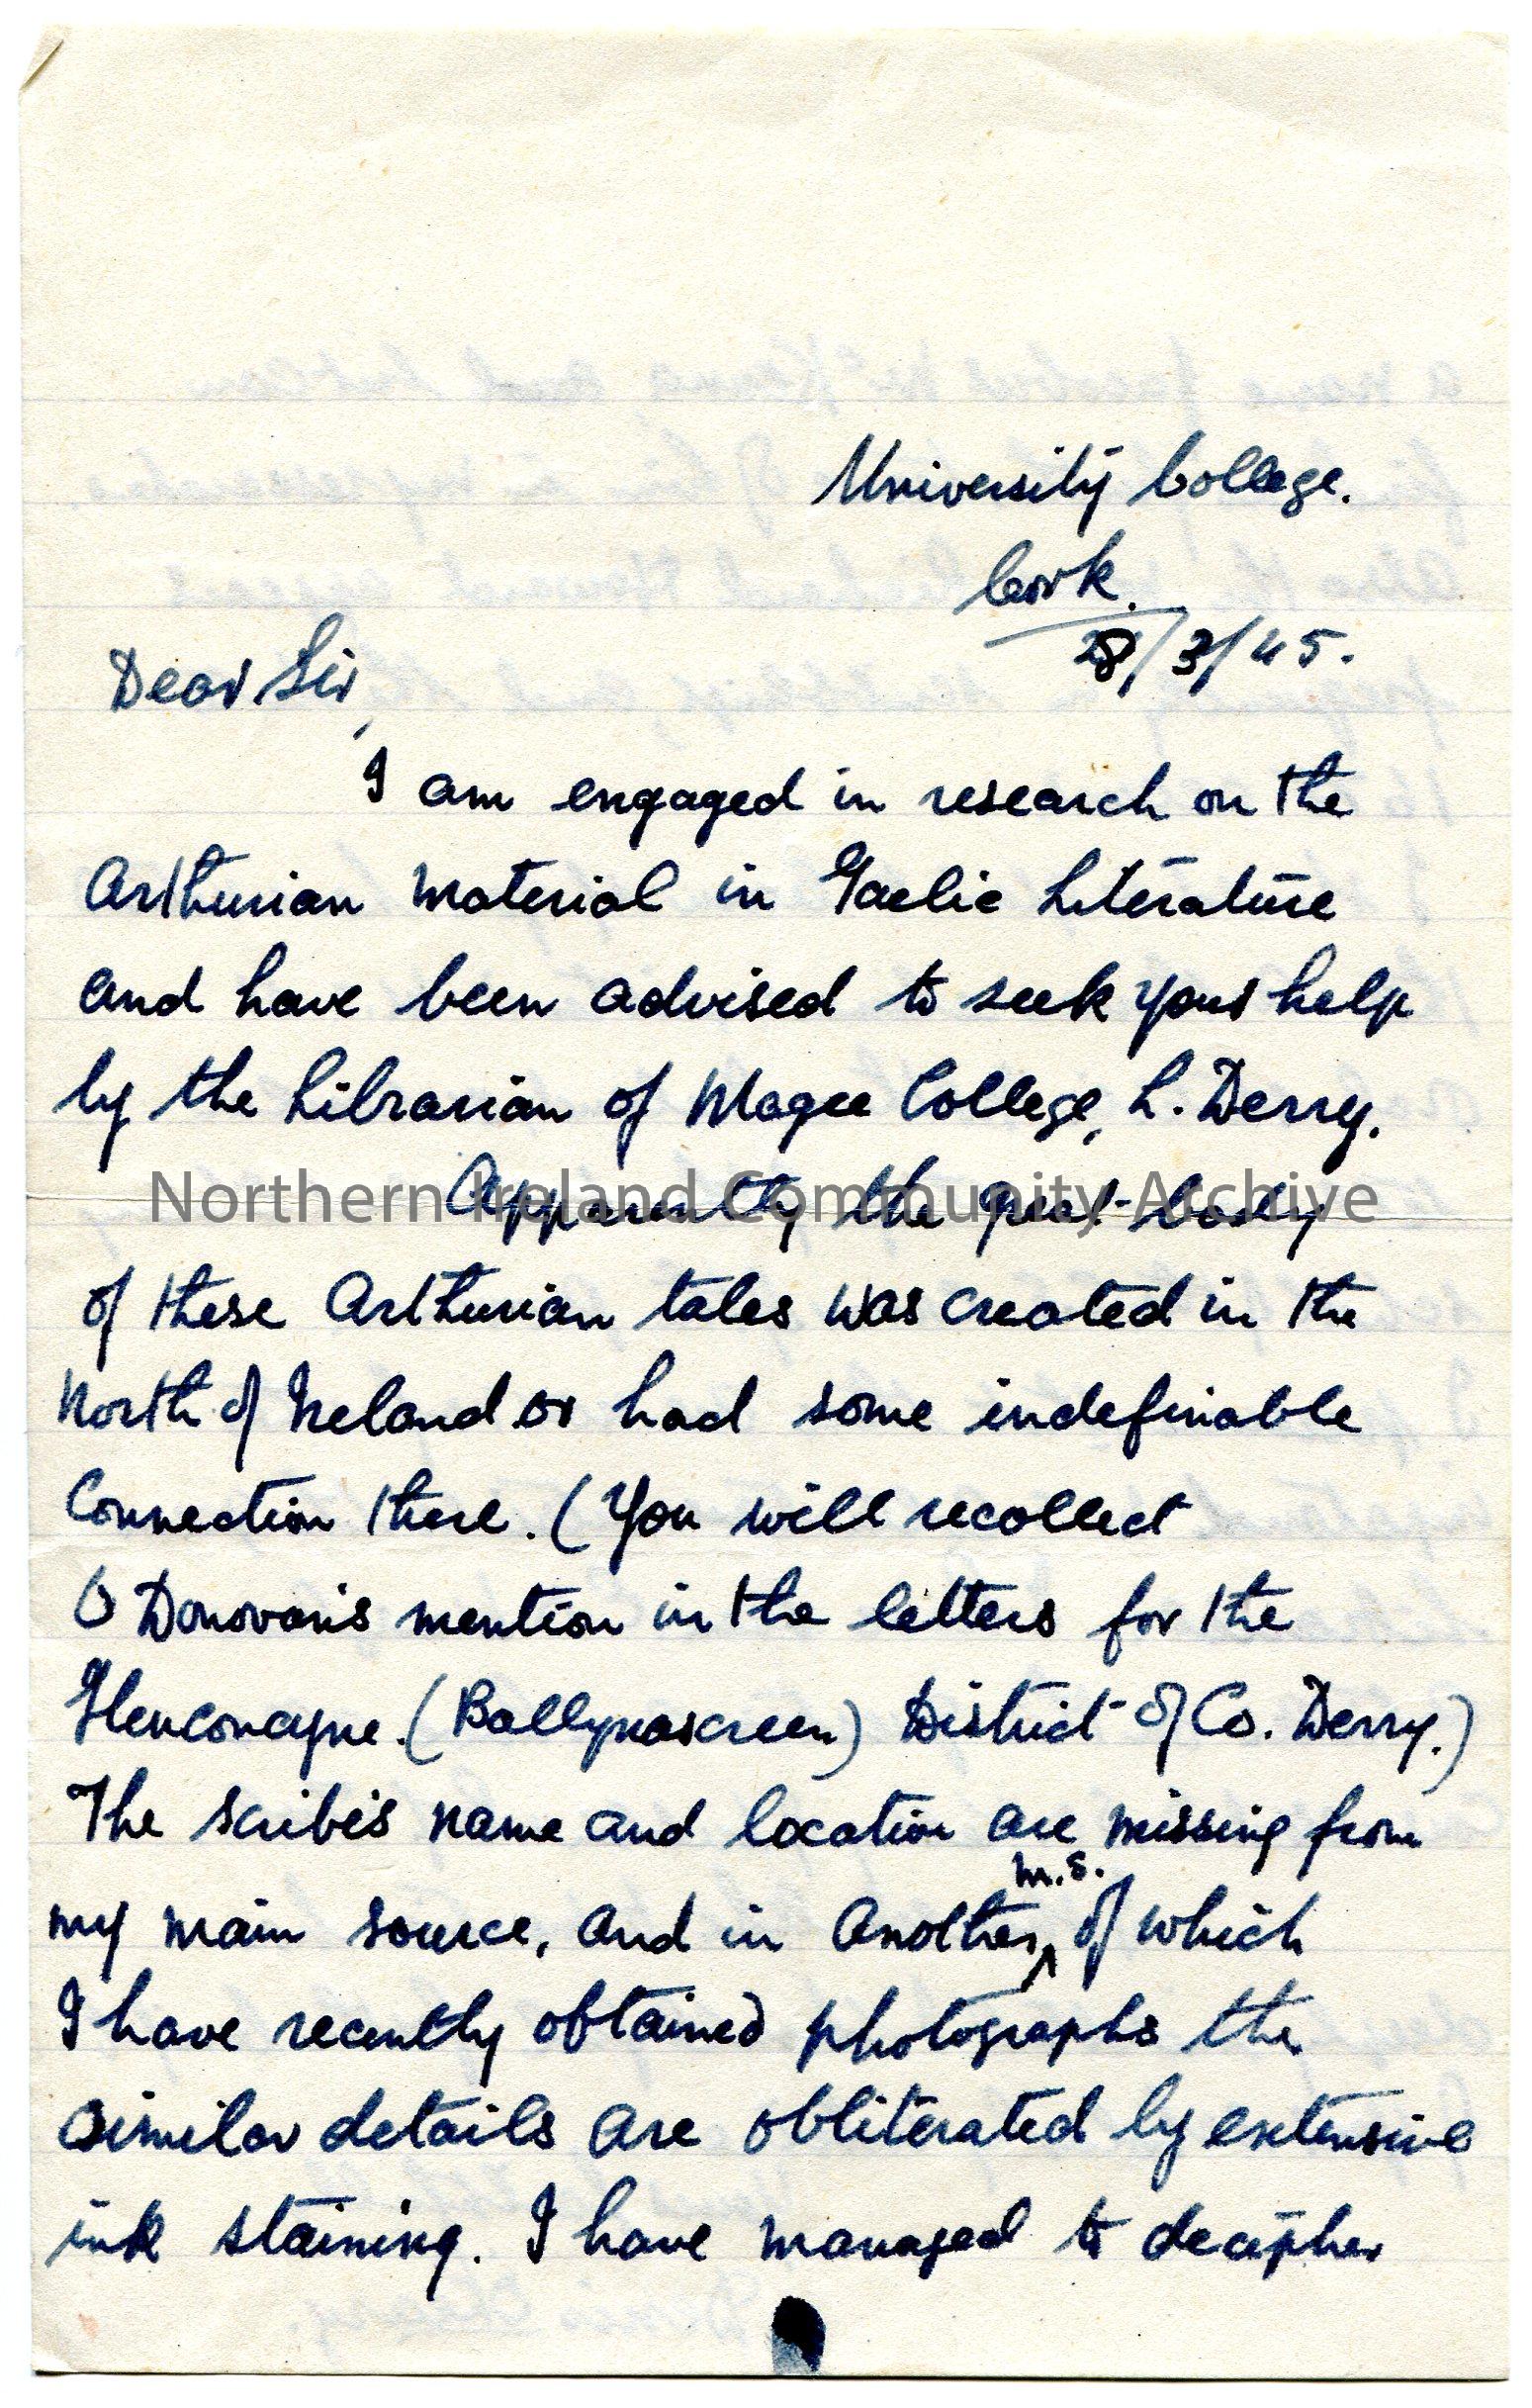 University College.
Cork.
28/3/45.
Dear Sir,
I am engaged in research on the
Arthurian material in Gaelic Literature
and have been advised to seek your help
by the Librarian of Magee College, L. Derry.
Apparently the great body
Northern Ireland Community Archive
of these Arthurian tales was created in the
North of Ireland or had some indefinable
Connection there. (You will recollect
O Donovan's mention in the letters for the
Glenconcyne (Ballynascreen) District of Co. Derry.)
The scribe's name and location are missing from
my main source, and in another m.s. of which
I have recently obtained photographs the
similar details are obliterated by extensive
ink staining. I have managed to decipher